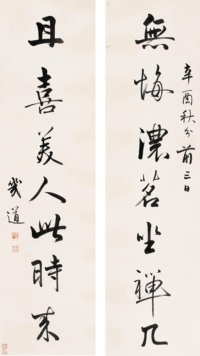 辛酉秋分前三日
無悔濃茗坐禪几
且喜美人此時來
幾道